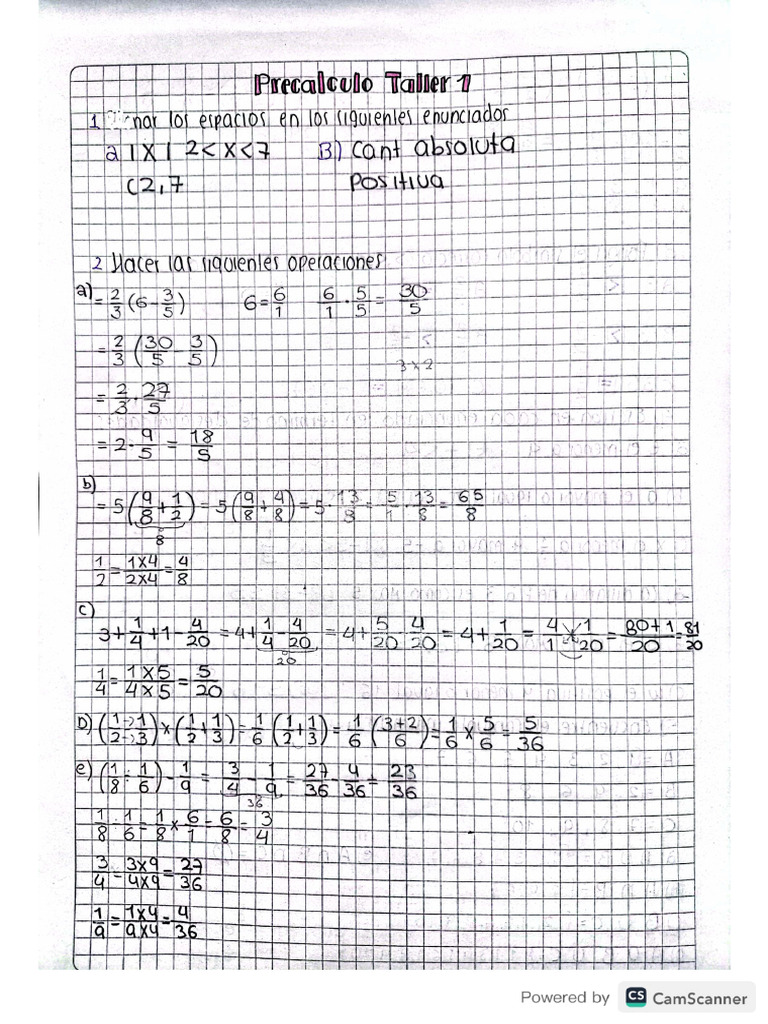 Precalculo Taller 1
1 nar los espacios en los siguientes enunciados
a |X| 2<X<7 B) Cant absoluta
(2,7 Positiva
2 Hacer las siguientes operaciones
a) = 2/3 (6 - 3/5) 6 = 6/1 6/1 · 5/5 = 30/5
= 2/3 (30/5 - 3/5)
= 2/3 · 27/5
= 2 · 9/5 = 18/5
b)
= 5 (9/8 + 1/2) = 5 (9/8 + 4/8) = 5 · 13/8 = 5/1 · 13/8 = 65/8
8
1/2 = 1x4/2x4 = 4/8
c)
3 + 1/4 + 1 - 4/20 = 4 + 1/4 - 4/20 = 4 + 5/20 - 4/20 = 4 + 1/20 = 4/1 x 1/20 = 80+1/20 = 81/20
20
1/4 = 1x5/4x5 = 5/20
D) (1/2 → 1/3) x (1/2 + 1/3) = 1/6 (1/2 + 1/3) = 1/6 (3+2/6) = 1/6 x 5/6 = 5/36
e) (1/8 ÷ 1/6) - 1/9 = 3/4 - 1/9 = 27/36 - 4/36 = 23/36
36
1/8 ÷ 1/6 = 1/8 x 6/1 = 6/8 = 3/4
3/4 = 3x9/4x9 = 27/36
1/9 = 1x4/9x4 = 4/36
Powered by CS CamScanner